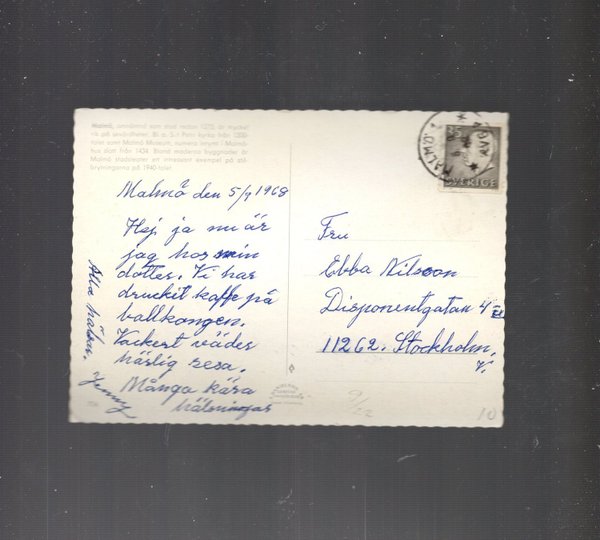 Malmö, omnämnd som stad redan 1275, är mycket
rik på sevärdheter. Bl. a. S:t Petri kyrka från 1300-
talet samt Malmö Museum, numera inrymt i Malmö-
hus slott från 1434. Bland moderna byggnader är
Malmö stadsteater ett intressant exempel på stil-
brytningarna på 1940-talet.
MALMÖ 1
SVERIGE
Malmö den 5/7 1968
Hej ja nu är
jag hos min
dotter. Vi har
druckit kaffe på
ballkongen.
Vackert väder
härlig resa.
Många kära
hälsningar
Jenny
Alla hälsar.
Fru
Ebba Nilsson
Disponentgatan 4
11262. Stockholm.
V.
9/22
10